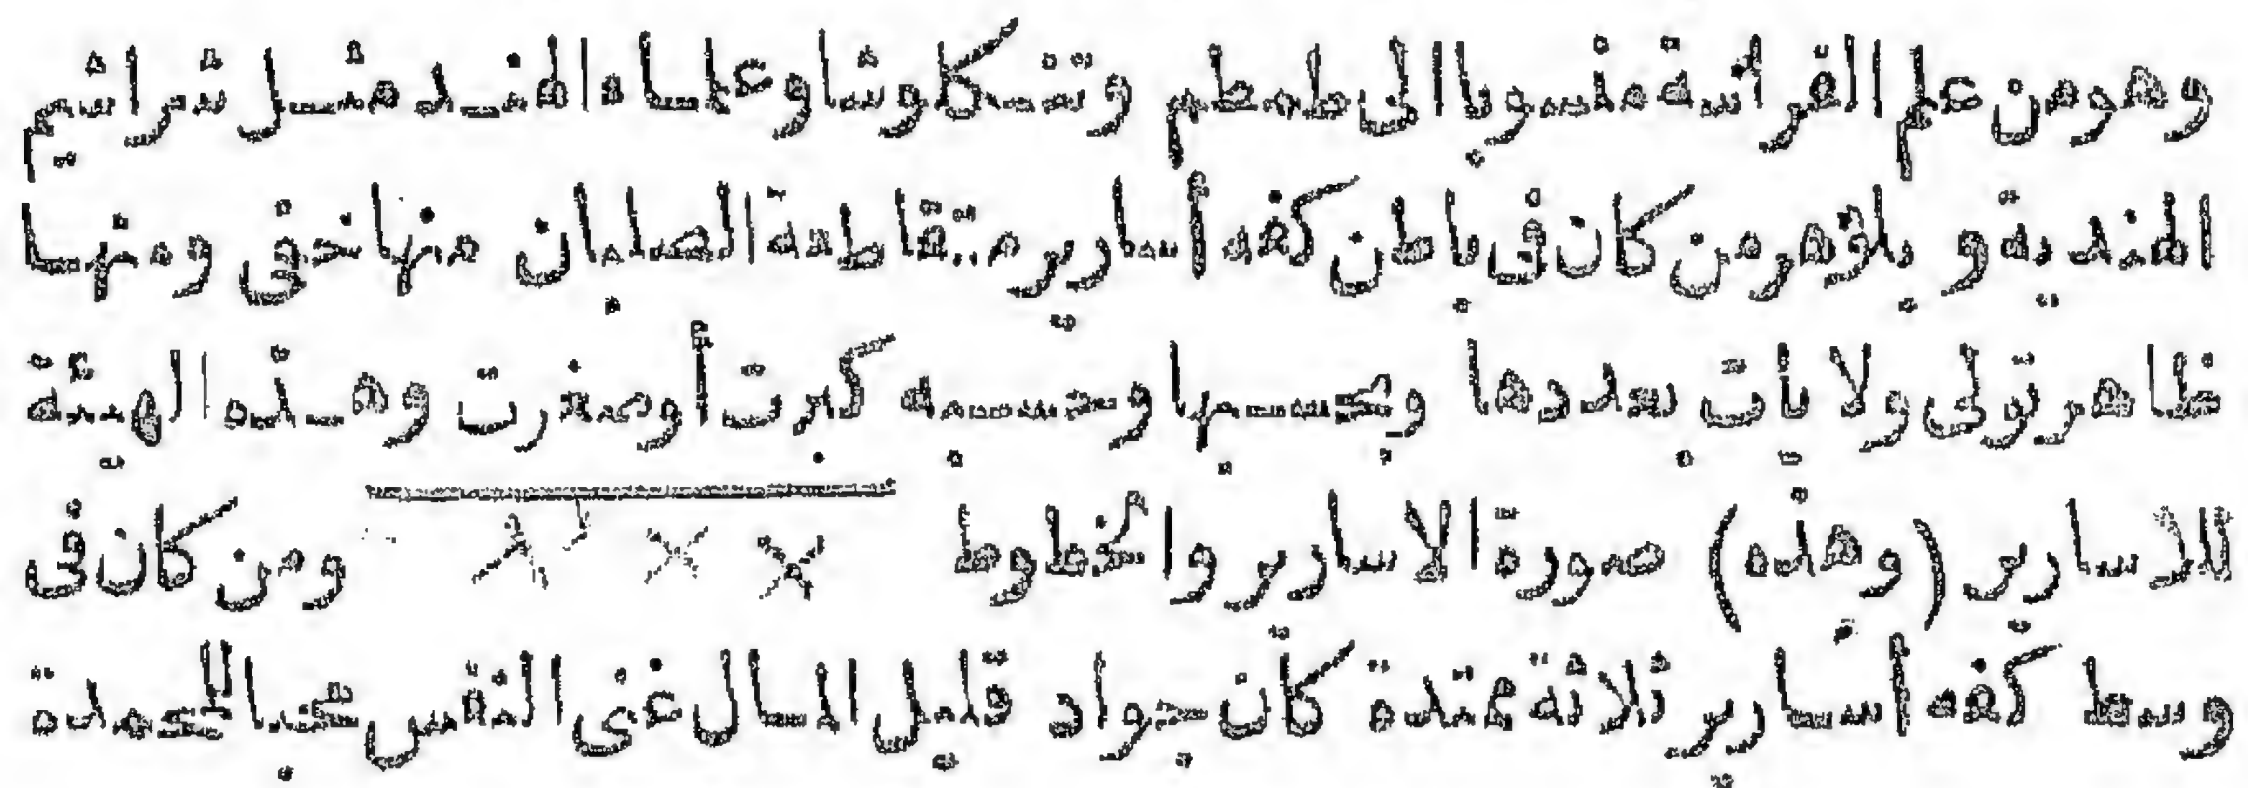 وهو من علم الفراسة منسوبا الى طمطم وتنكلوشا وعلماء الهند مثل شراشيم
الهندية و بلاؤهر من كان فى باطن كفه أسارير متقاطعة الصلبان منها خفى ومنها
ظاهر تولى ولايات بعددها وبحسبها وحسبه كبرت أو صغرت وهذه الهيئة
للاسارير (وهذه) صورة الاسارير والخطوط ومن كان فى
وسط كفه أسارير ثلاثة ممتدة كان جواد قليل المال غنى النفس محبا للحمدة